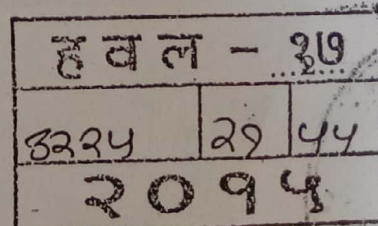 हवल - १७
३२२५ २९ ५५
२०१५